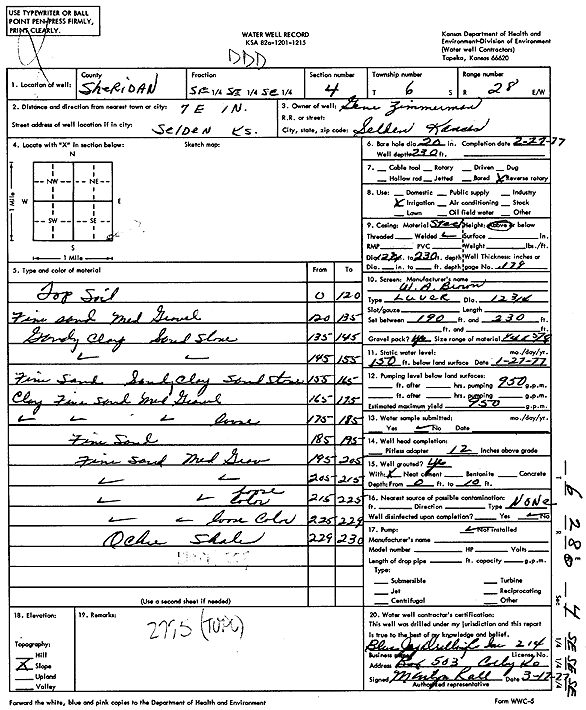 USE TYPEWRITER OR BALL
POINT PEN-PRESS FIRMLY,
PRINT CLEARLY.
WATER WELL RECORD
KSA 82a-1201-1215
DDD
Kansas Department of Health and
Environment-Division of Environment
(Water well Contractors)
Topeka, Kansas 66620
1. Location of well: County SHERIDAN Fraction SE 1/4 SE 1/4 SE 1/4 Section number 4 Township number T 6 S Range number R 28 E/W
2. Distance and direction from nearest town or city: 7 E 1 N.
Street address of well location if in city: SELDEN KS.
3. Owner of well: Gene Zimmerman
R.R. or street:
City, state, zip code: Selden Kansas
4. Locate with "X" in section below: Sketch map:
N
NW NE
W E
SW SE
S
1 Mile
1 Mile
5. Type and color of material From To
Top Soil 0 120
Fine sand Med Gravel 120 135
Sandy Clay Sand Stone 135 145
145 155
Fine Sand Sandy Clay Sand Stone 155 165
Clay Fine Sand Med Gravel 165 175
loose 175 185
Fine Sand 185 195
Fine Sand Med Grav 195 205
205 215
loose Color 215 225
loose Color 225 229
Ochre Shale 229 230
(Use a second sheet if needed)
6. Bore hole dia. 20 in. Completion date 2-27-77
Well depth 230 ft.
7. Cable tool Rotary Driven Dug
Hollow rod Jetted Bored X Reverse rotary
8. Use: Domestic Public supply Industry
X Irrigation Air conditioning Stock
Lawn Oil field water Other
9. Casing: Material Steel Height: Above or below
Threaded Welded Surface in.
RMP PVC Weight lbs./ft.
Dia. in. to 230 ft. depth Wall Thickness: inches or
Dia. in. to ft. depth gage No. .179
10. Screen: Manufacturer's name
W. A. Brown
Type Luver Dia. 12 3/4
Slot/gauze Length
Set between 190 ft. and 230 ft.
ft. and ft.
Gravel pack? Yes Size range of material
11. Static water level: mo./day/yr.
150 ft. below land surface Date 1-27-77
12. Pumping level below land surfaces:
ft. after hrs. pumping 950 g.p.m.
ft. after hrs. pumping g.p.m.
Estimated maximum yield 950 g.p.m.
13. Water sample submitted: mo./day/yr.
Yes No Date
14. Well head completion:
Pitless adapter 12 Inches above grade
15. Well grouted? Yes
With: X Neat cement Bentonite Concrete
Depth: From 0 ft. to 10 ft.
16. Nearest source of possible contamination:
ft. Direction Type NONE
Well disinfected upon completion? Yes No
17. Pump: Not installed
Manufacturer's name
Model number HP Volts
Length of drop pipe ft. capacity g.p.m.
Type:
Submersible Turbine
Jet Reciprocating
Centrifugal Other
18. Elevation:
Topography:
Hill
X Slope
Upland
Valley
19. Remarks:
2775 (TOPO)
20. Water well contractor's certification:
This well was drilled under my jurisdiction and this report
is true to the best of my knowledge and belief.
Blue Jay Drilling Inc 214
Business name License No.
Address Box 503 Colby Ks
Signed Marilyn Kall Date 3-17-77
Authorized representative
T 6 R 28 Sec 4 SE 1/4 SE 1/4 SE 1/4
Forward the white, blue and pink copies to the Department of Health and Environment
Form WWC-5